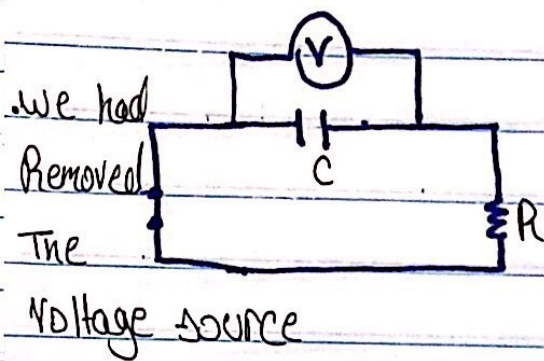 V
.we had
C
Removed
R
The
Voltage source